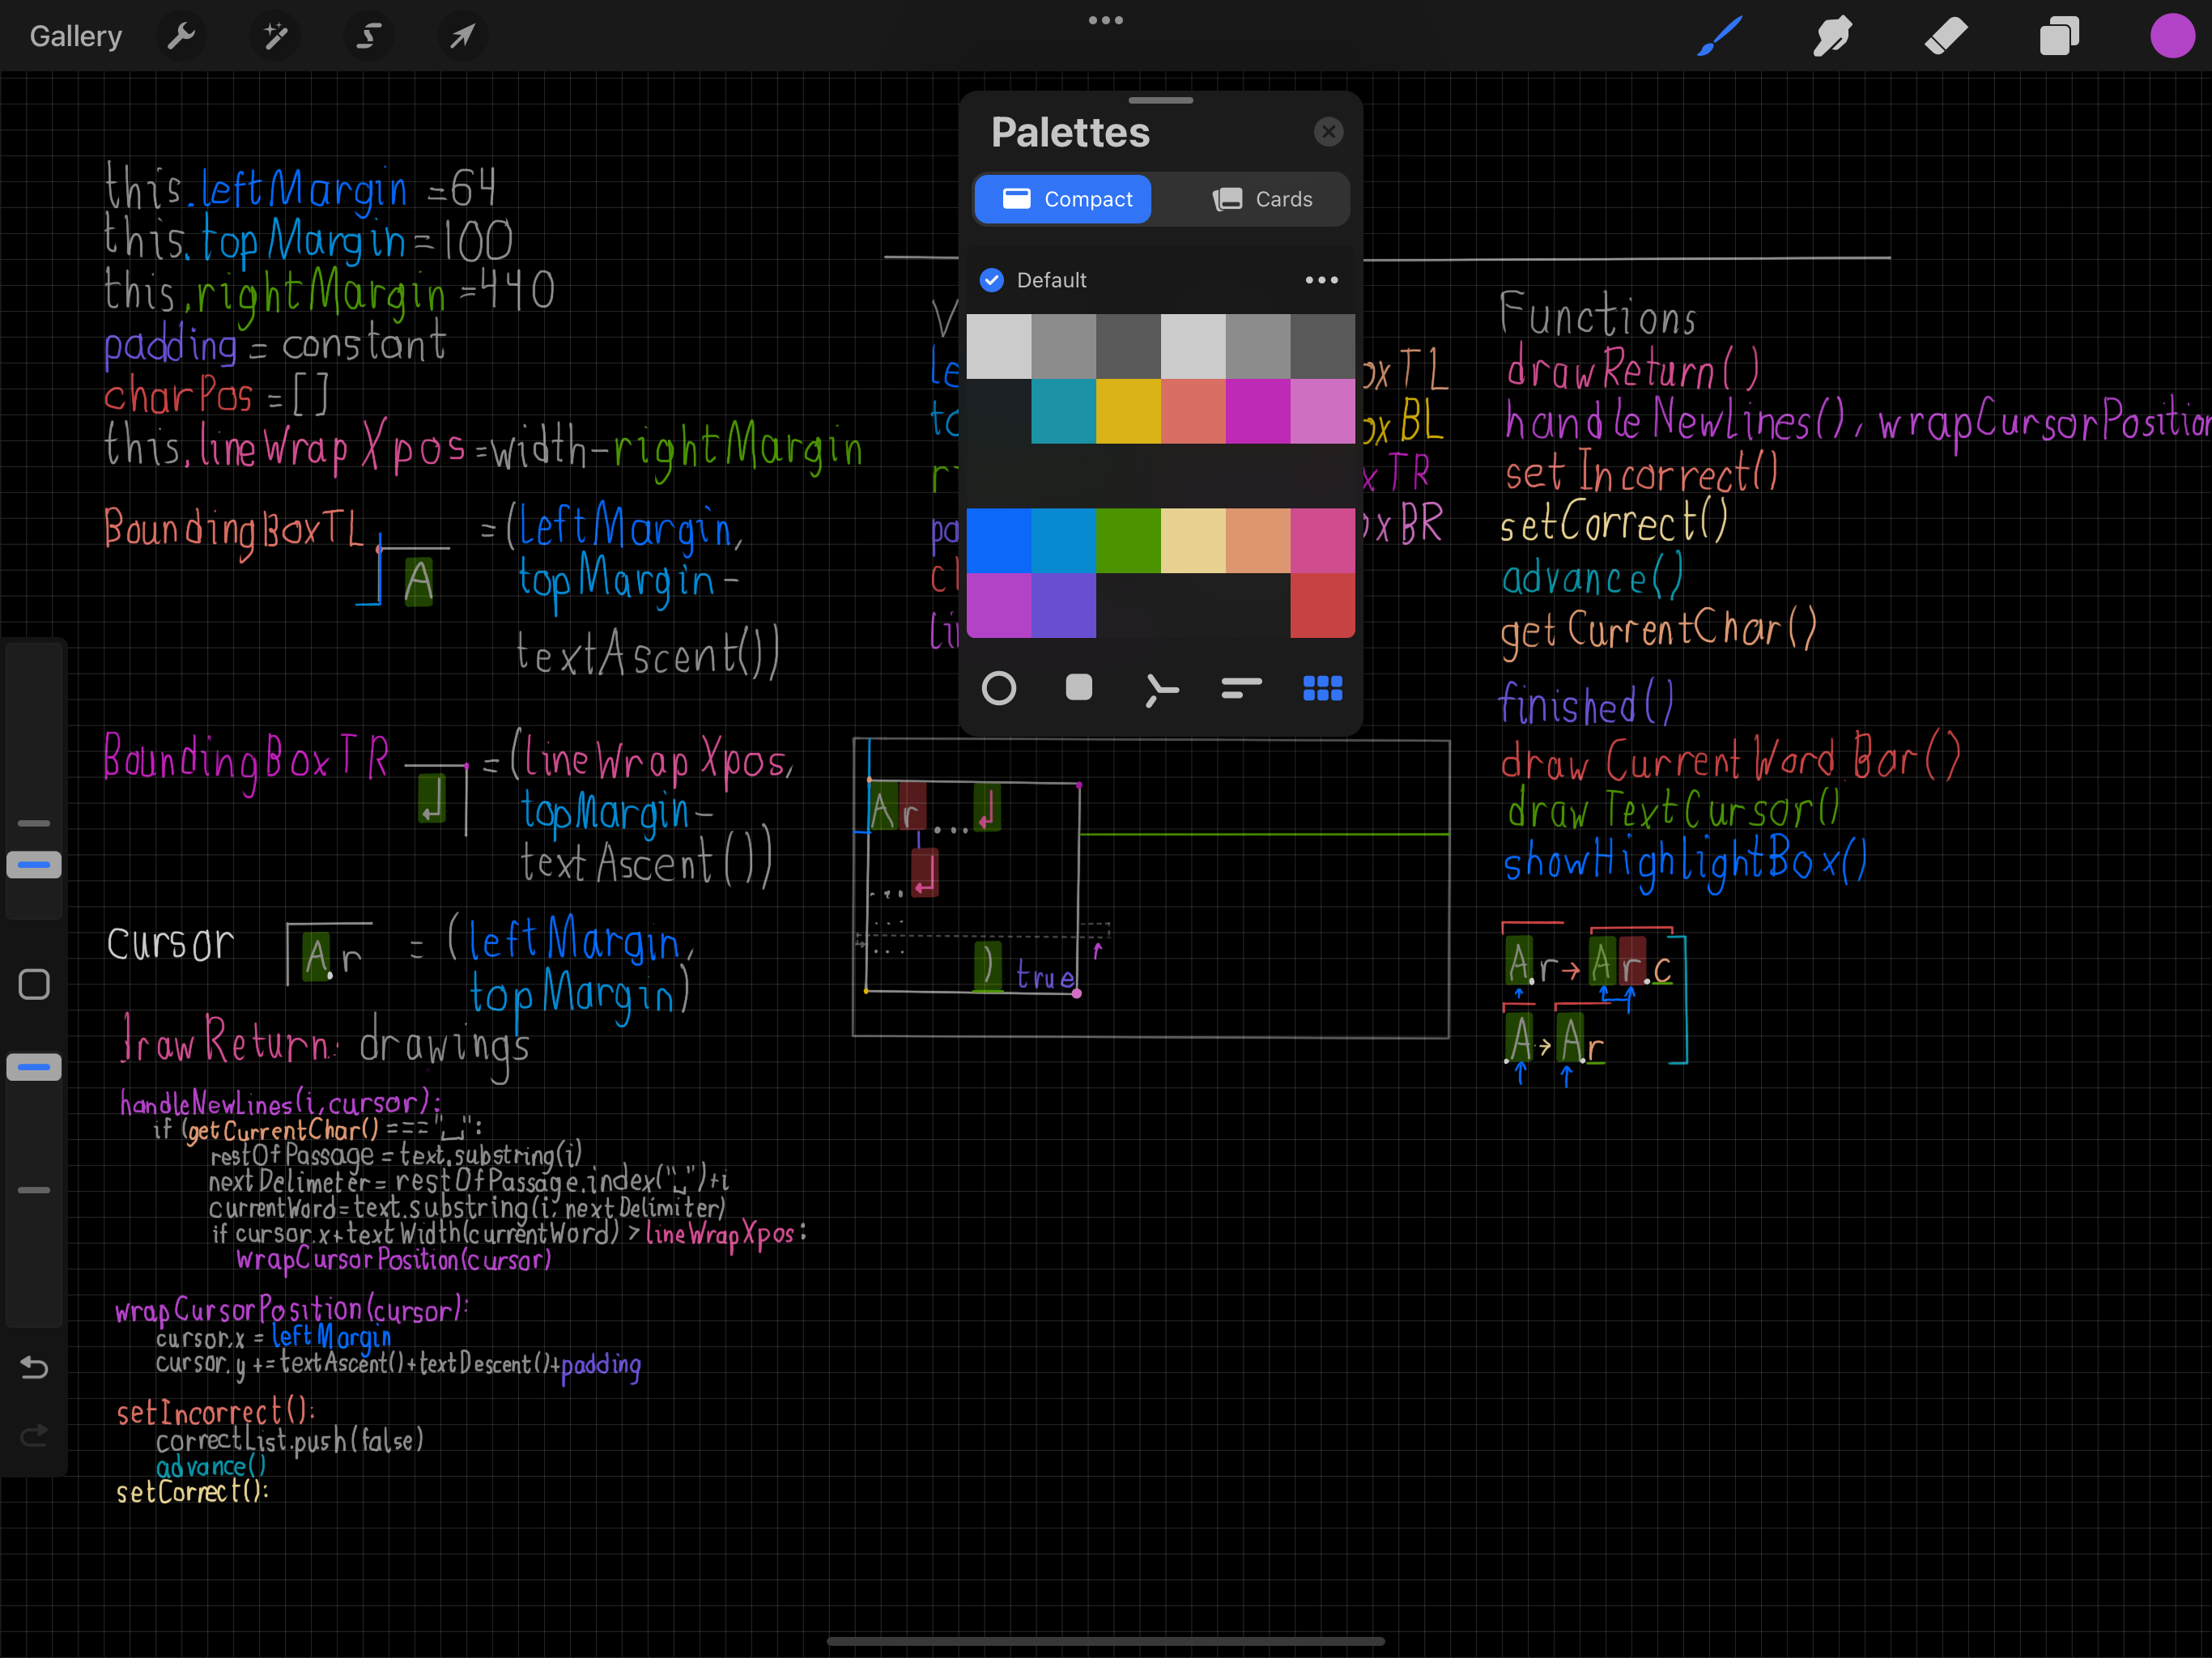 Gallery
this.leftMargin =64
this.topMargin=100
this.rightMargin =440
padding = constant
charPos =[]
this.lineWrapXpos=width-rightMargin
BoundingBoxTL
A
=(LeftMargin,
topMargin-
textAscent())
BoundingBoxTR
=(lineWrapXpos,
topMargin-
textAscent())
cursor
A.r
= (leftMargin,
topMargin)
drawReturn: drawings
handleNewLines(i,cursor):
if (getCurrentChar() === "␣":
restOfPassage = text.substring(i)
nextDelimeter= restOfPassage.index("␣")+i
currentWord=text.substring(i, nextDelimiter)
if cursor.x+textWidth(currentWord) > lineWrapXpos:
wrapCursorPosition(cursor)
wrapCursorPosition(cursor):
cursor.x = leftMargin
cursor.y += textAscent()+textDescent()+padding
setIncorrect():
correctList.push(false)
advance()
setCorrect():
Palettes
Compact
Cards
Default
V
le
to
ri
pa
cl
li
oxTL
oxBL
xTR
oxBR
Ar...↲
...↲
...
...
) true
Functions
drawReturn()
handleNewLines(), wrapCursorPosition
setIncorrect()
setCorrect()
advance()
getCurrentChar()
finished()
drawCurrentWordBar()
drawTextCursor()
showHighlightBox()
A.r→Ar.c
.A→A.r